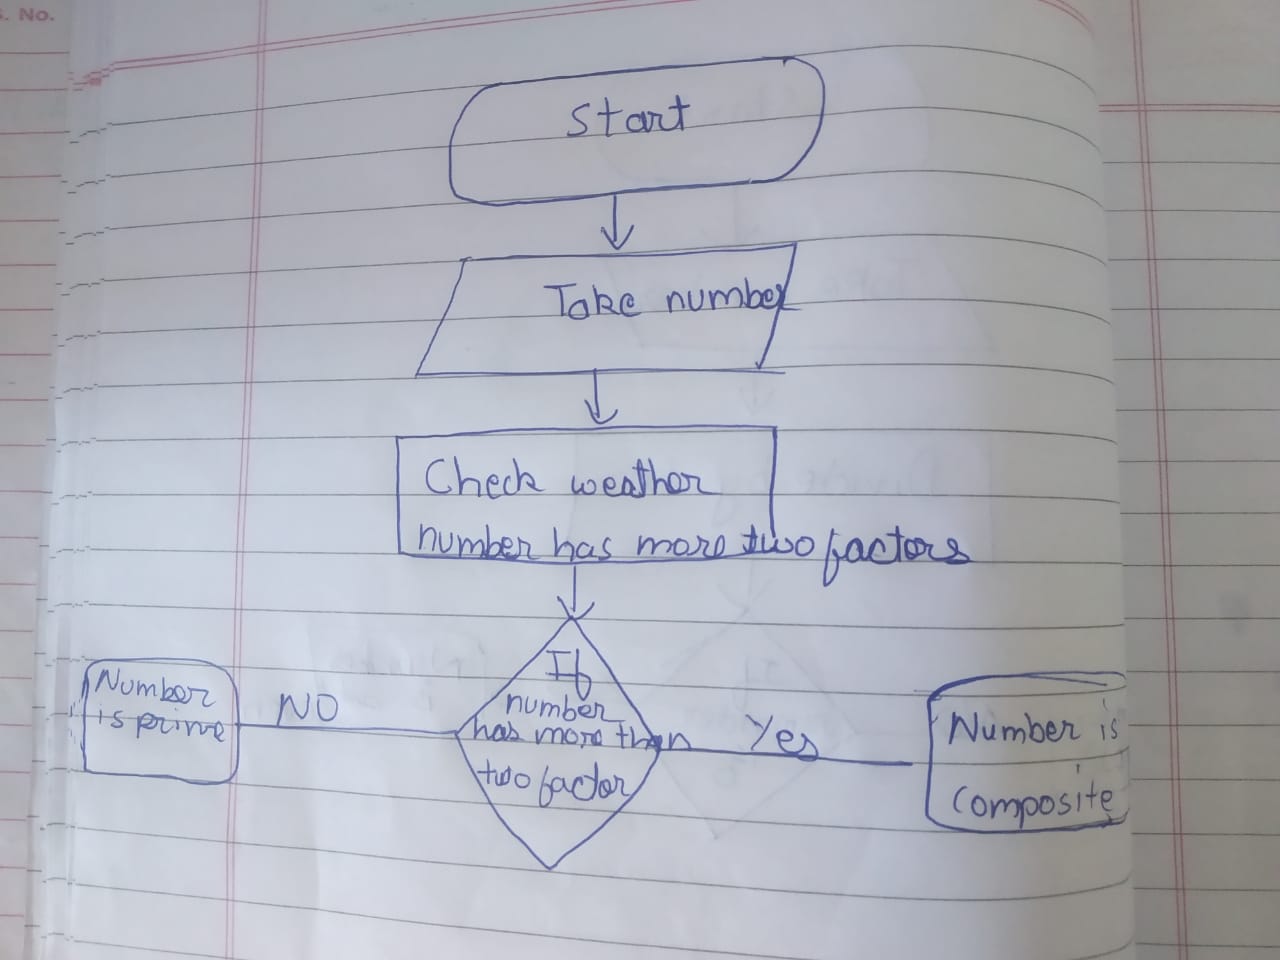 s. No.
Start
Take number
Check weather
number has more two factors
If
number
has more than
two factor
NO
Yes
Number
is prime
Number is
composite